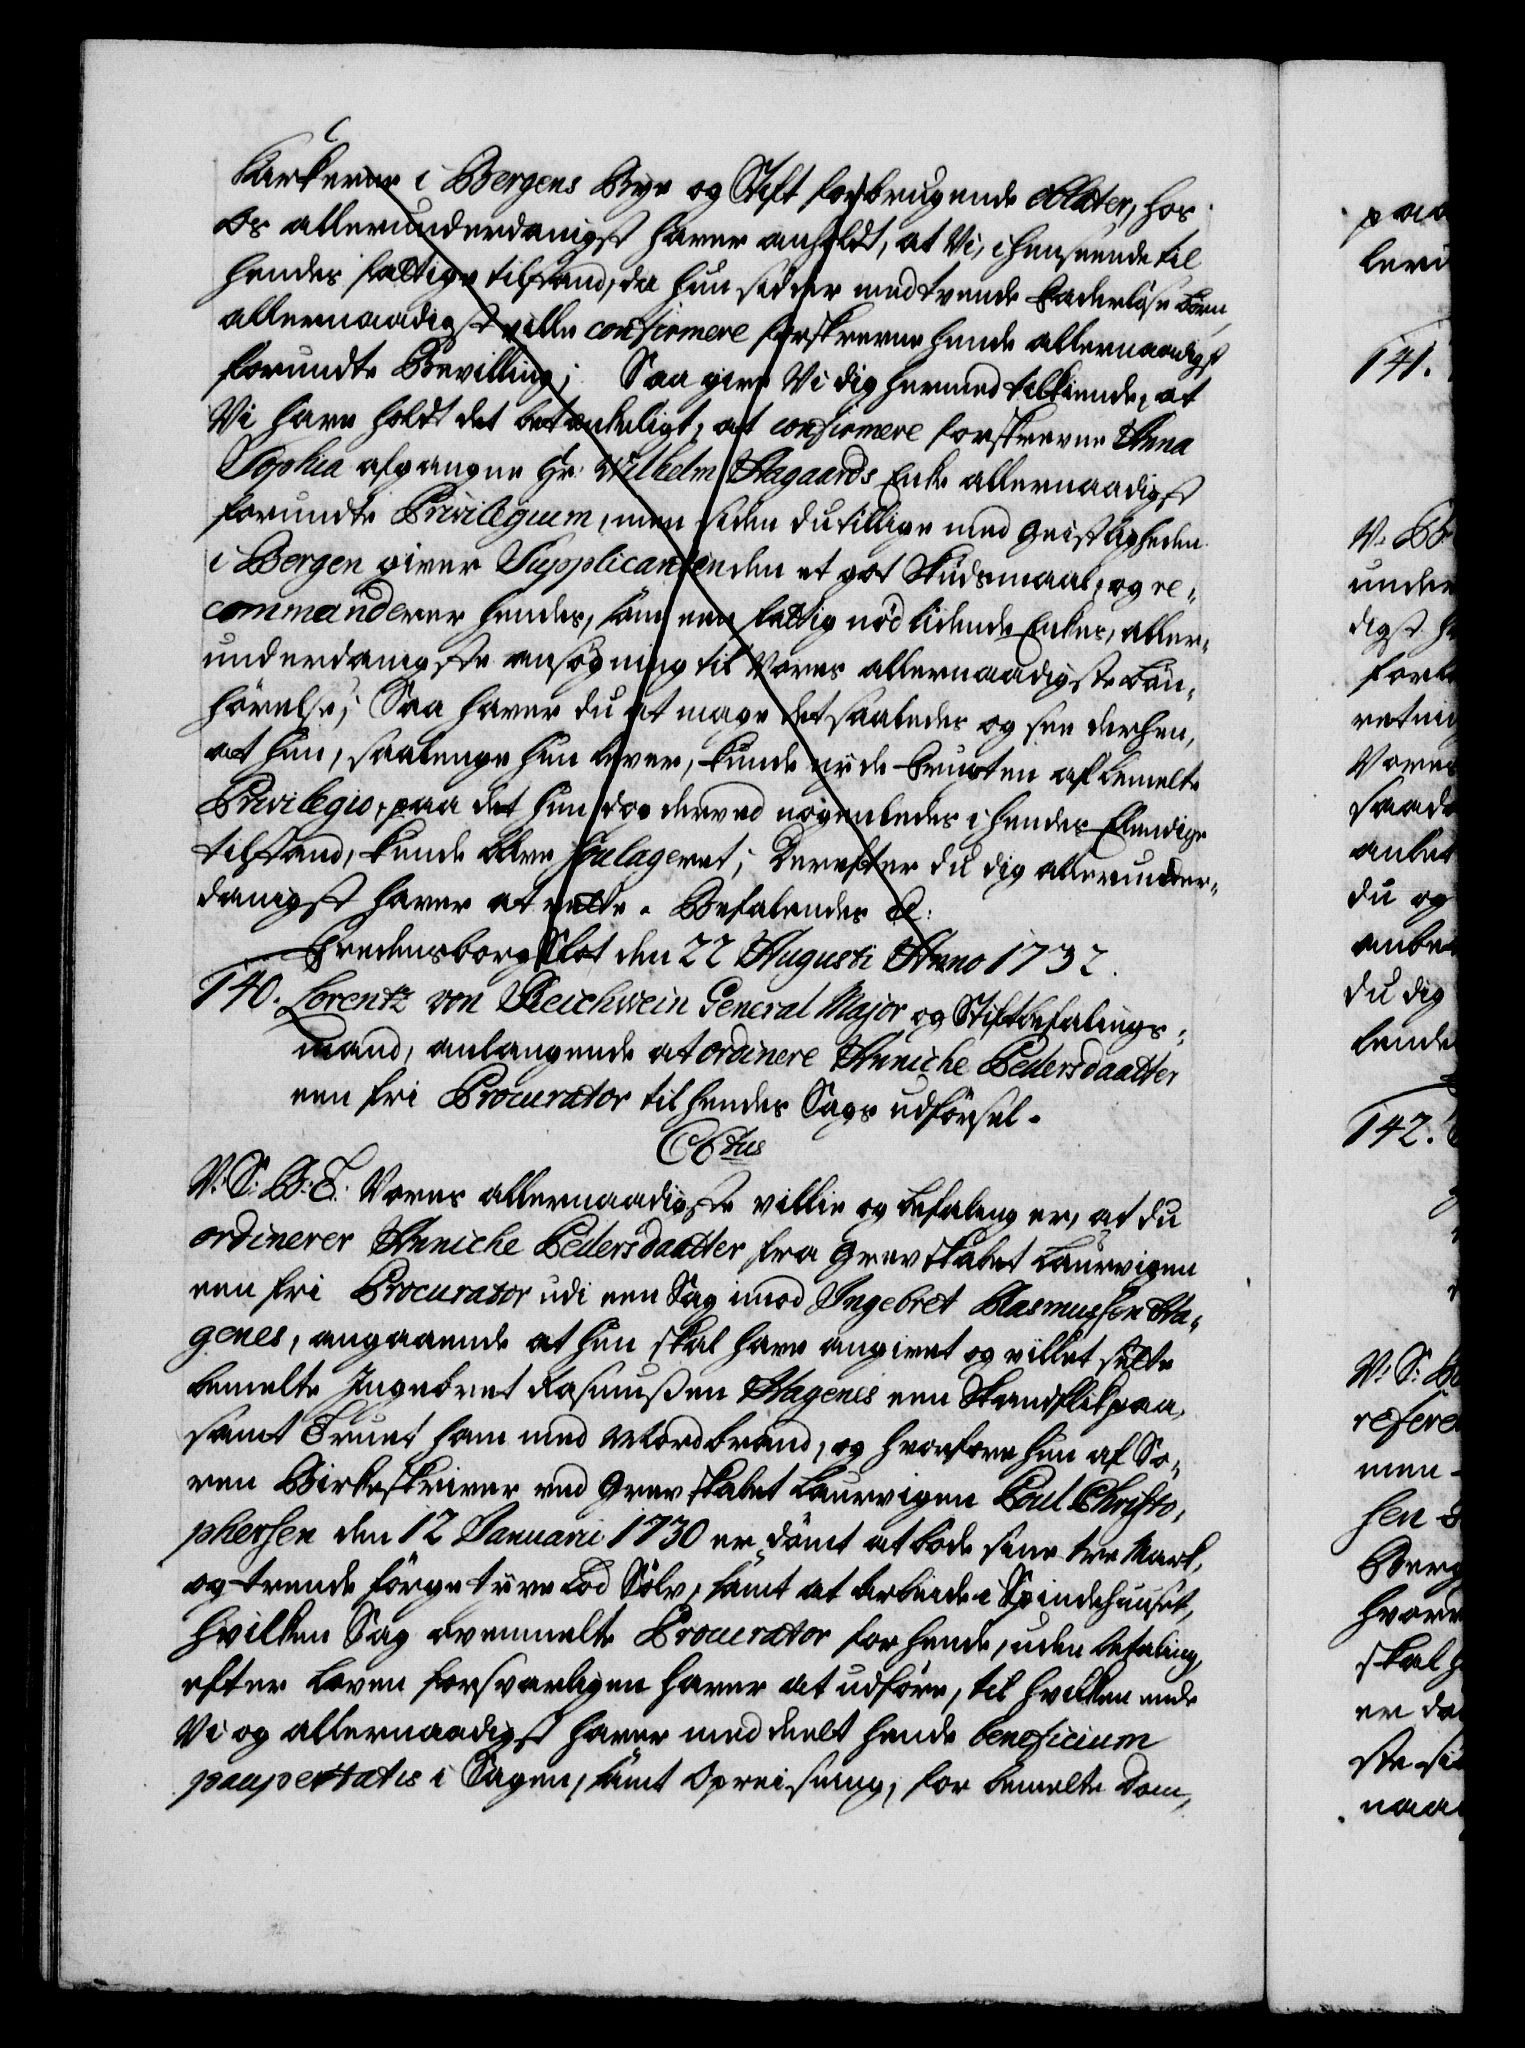 Kirkerne i Bergens Bye og Stift forbrugende Oblater, hos
Os allerunderdanigst haver anholdt, at Vi, i henseende til
hendes fattige tilstand, da hun sidder med tvende Faderløse Børn,
allernaadigst ville confirmere forskrevne hende allernaadigst
forundte Bevilling; Saa give Vi dig hermed tilkiende, at
Vi have holdt det betænkeligt, at confirmere forskrevne Anna
Sophia afgangne Hr: Wilhelm Hagaards Enke allernaadigst
forundte Privilegium, men siden du tillige med Geistligheden
i Bergen giver Supplicantinden et got Skudsmaal, og re-
commanderer hendes, som een fattig nødlidende Enkes, aller-
underdanigste ansøgning til Vores allernaadigste Bøn-
hørelse; Saa haver du at mage det saaledes og see derhen,
at hun, saalenge hun lever, kunde nyde Frugten af bemelte
Privilegio, paa det hun dog derved nogenledes i hendes Elendige
tilstand, kunde blive soulageret; Derefter du dig allerunder-
danigst haver at rette. Befalendes &:
Fredensborg Slot den 22 Augusti Anno 1732.
140. Lorentz von Reichwein General Major og Stiftbefalings-
mand, anlangende at ordinere Anniche Pedersdaatter
een fri Procurator til hendes Sags udførsel.
CStus
V: S: B: T: Vores allernaadigste villie og befaling er, at du
ordinerer Anniche Pedersdaatter fra Grevskabet Laurvigen
een fri Procurator udi een Sag imod Ingebret Rasmussen Ha-
genes, angaaende at hun skal have angivet og villet sette
bemelte Ingebret Rasmussen Hagenes een Skamflik paa,
samt Truet ham med Mordbrand, og hvorfore hun af So-
ren Birkeskriver ved Grevskabet Laurvigen Poul Christo-
phersen den 12 Januarii 1730 er dømt at bøde sine tre Mark,
og trende förgetyve Lod Sølv, samt at arbeide i Spindehuuset,
hvilken Sag ovenmelte Procurator for hende, uden betaling,
efter Loven forsvarligen haver at udføre, til hvilken ende
Vi og allernaadigst haver meddeelt hende beneficium
paupertatis i Sagen, samt Opreisning, for bemelte Dom,
paa
141.
V. B
under
digst
forb
Vores
saad
anbe
du og
du dig
142.
V: S: B
refere
men
sen
Berg
hvor
skal
er d
naa